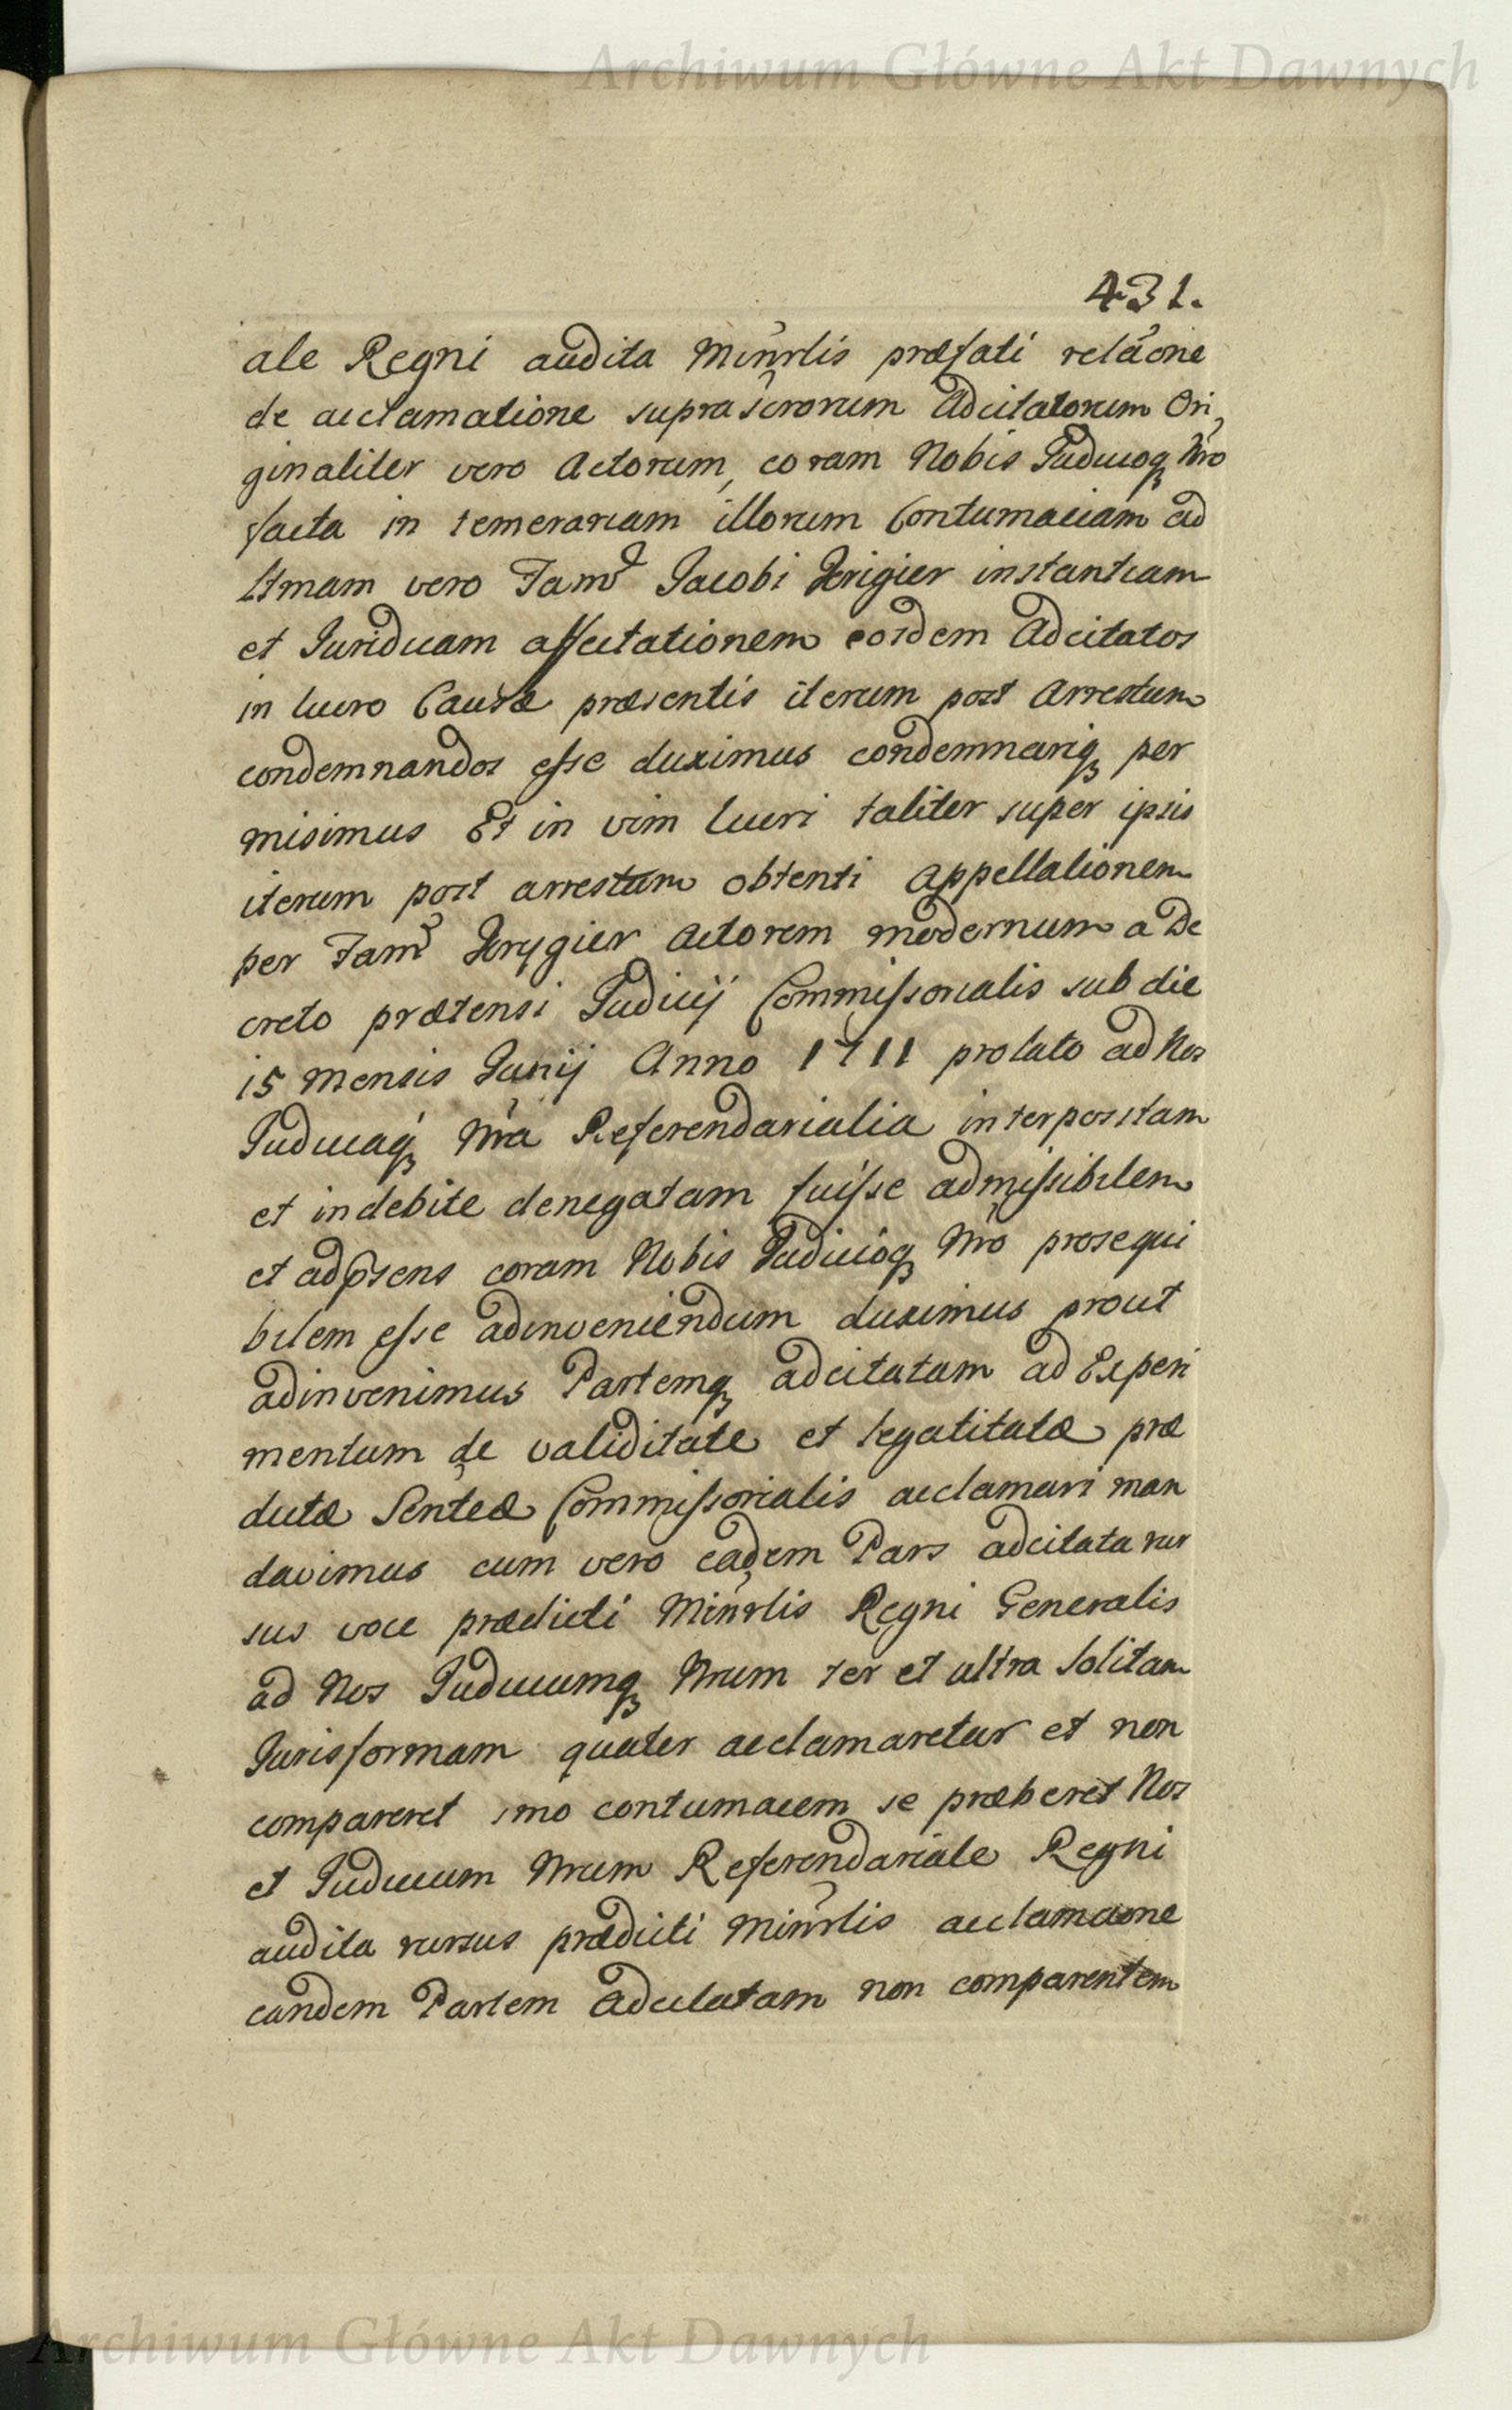 Archiwum Główne Akt Dawnych
431.
ale Regni audita Minrlis præfati relaone
de acclamatione suprascrorum Adcitatorum Ori
ginaliter vero Actorum, coram Nobis Judicioq Nro
facta in temerariam illorum Contumaciam ad
ltmam vero Fam Jacobi instantiam
et Juridicam affectationem eosdem Adcitatos
in lucro Causæ præsentis iterum post Arrestum
condemnandos esse duximus condemnariq per
misimus Et in vim lucri taliter super ipsis
iterum post arrestum obtenti Appellationem
per Fam Actorem modernum a De
creto prætensi Judicij Commissorialis sub die
15 Mensis Junij Anno 1711 prolato ad Nos
Judiciaq Nra Referendarialia interpositam
et indebite denegatam fuisse admissibilem
et ad psens coram Nobis Judicioq Nro prosequi
bilem esse adinveniendum duximus prout
adinvenimus Partemq adcitatam ad Experi
mentum de validitate et legalitate præ
dictæ Senteæ Commissorialis acclamari man
davimus cum vero eadem Pars adcitata rur
sus voce prædicti Minrlis Regni Generalis
ad Nos Judiciumq Nrum ter et ultra solitam
Juris formam quater acclamaretur et non
compareret imo contumacem se præberet Nos
et Judicium Nrum Referendariale Regni
audita rursus prædicti Minrlis acclamaone
eandem Partem Adcitatam non comparentem
Archiwum Główne Akt Dawnych